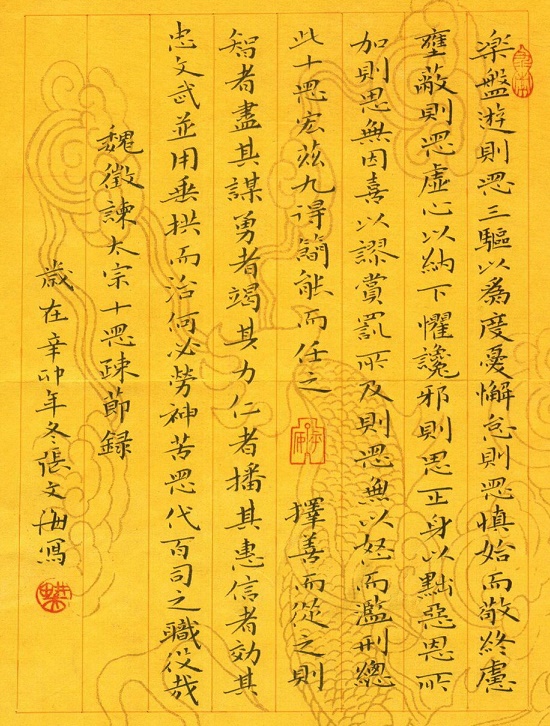 楽盤遊則思三驅以為度憂懈怠則思慎始而敬終慮
壅蔽則思虛心以納下懼讒邪則思正身以黜惡恩所
加則思無因喜以謬賞罰所及則思無以怒而濫刑總
此十思宏茲九得簡能而任之 擇善而從之則
智者盡其謀勇者竭其力仁者播其惠信者効其
忠文武並用垂拱而治何必勞神苦思代百司之職役哉
魏徵諫太宗十思疏節録
歲在辛卯年冬張文海寫